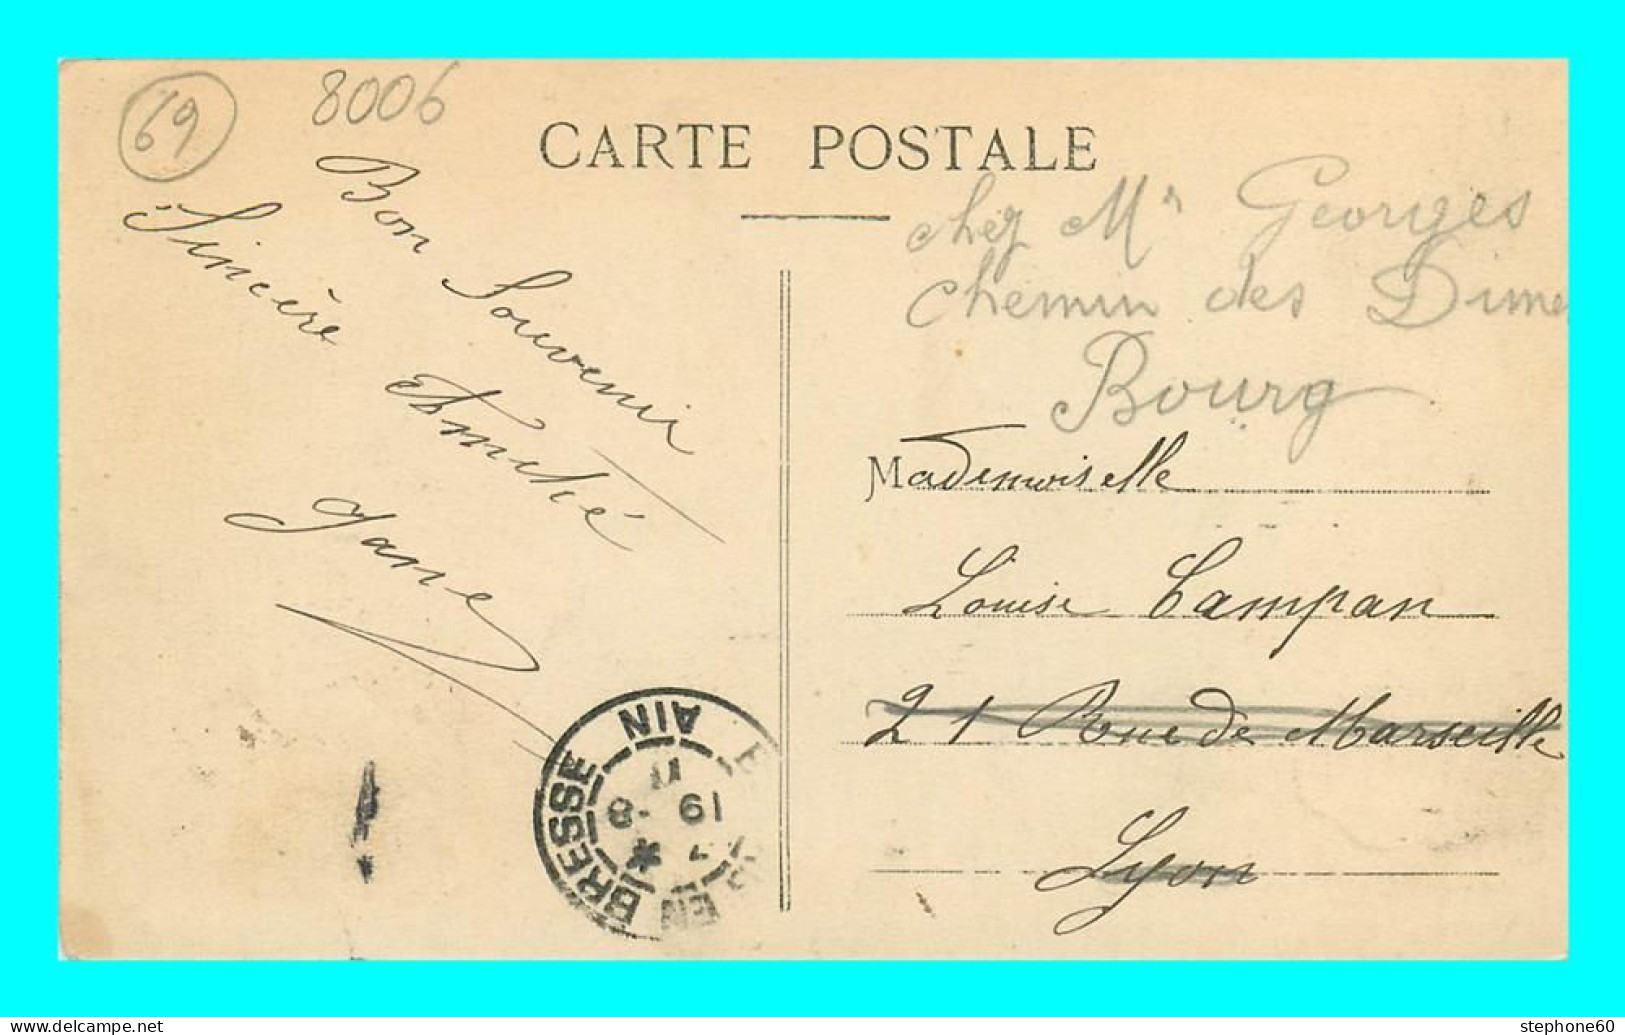 69
8006
CARTE POSTALE
Bon Souvenir
Sincère Amitié
Jane
chez Mr Georges
chemin des Dimes
Bourg
Mademoiselle
Louise Campan
21 Rue de Marseille
Lyon
EN BRESSE
AIN
19
8
www.delcampe.net
stephone60